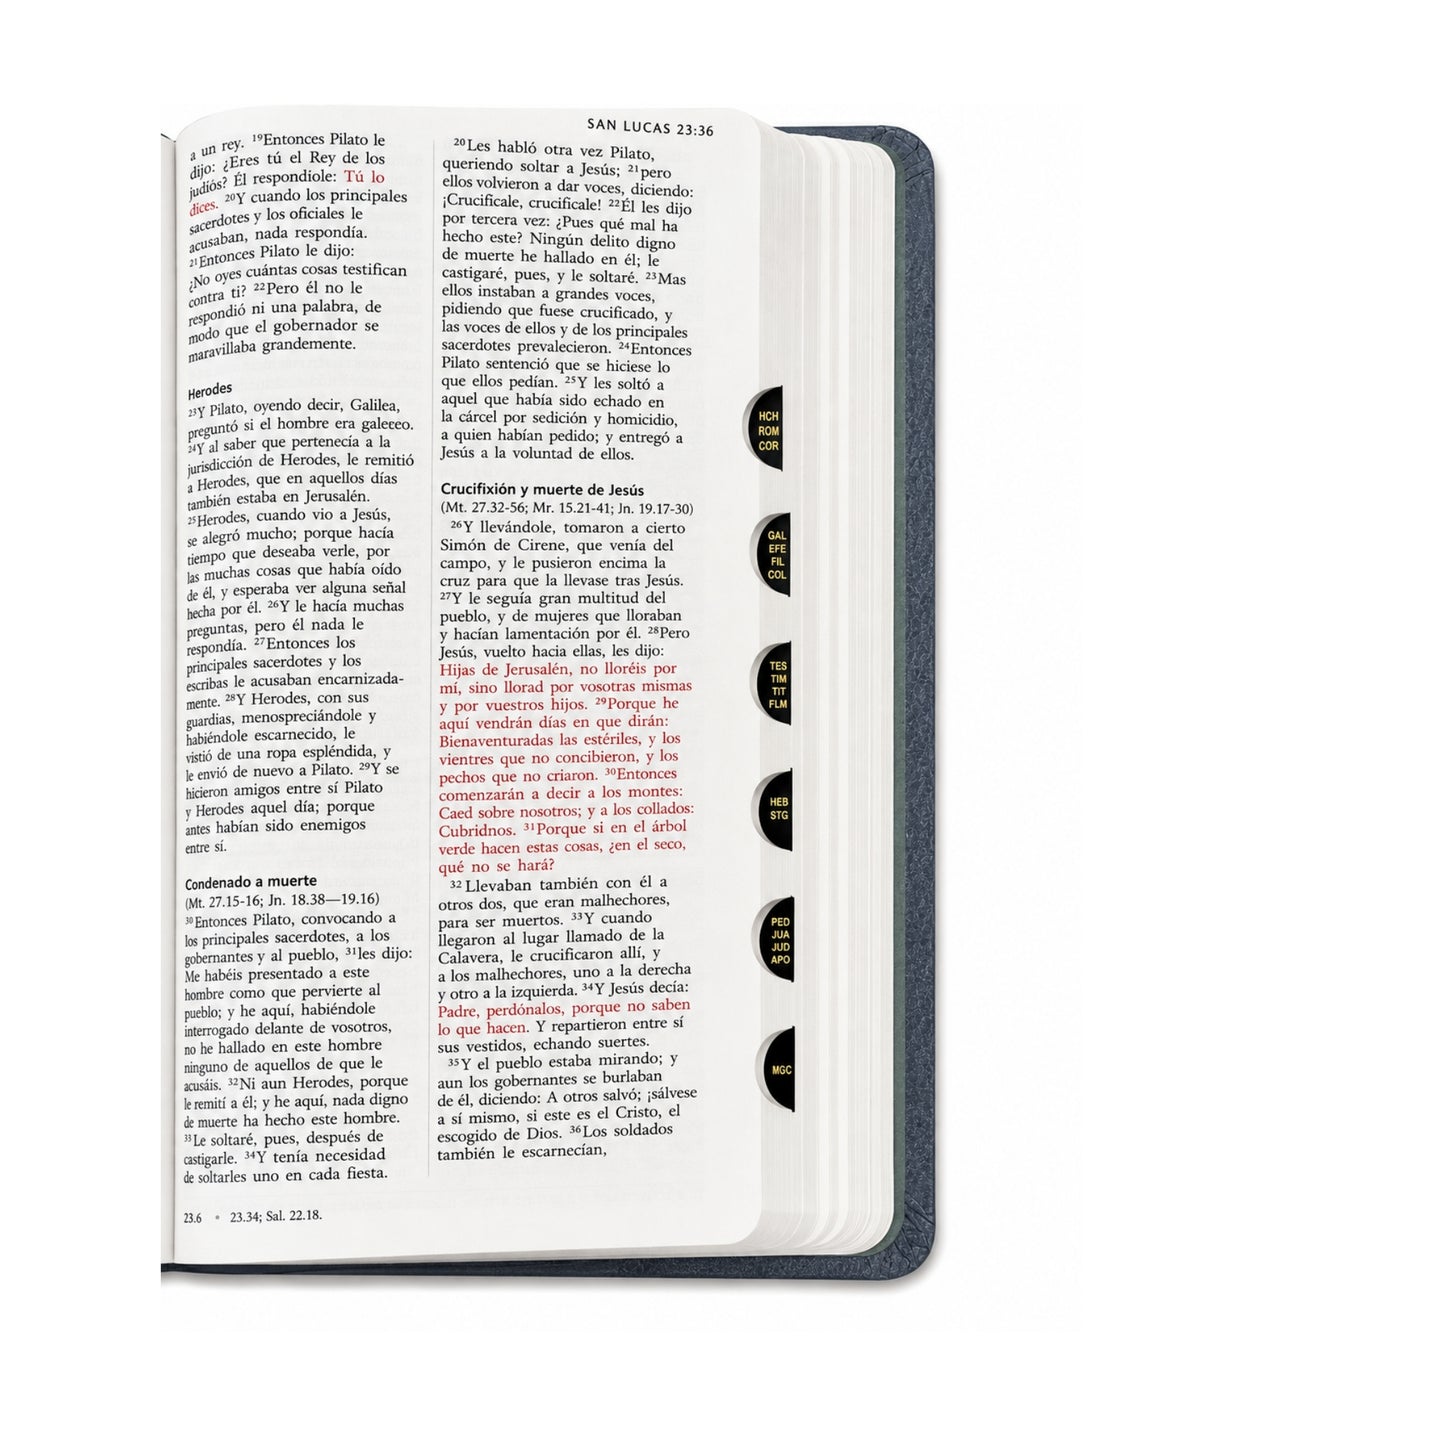 SAN LUCAS 23:36
a un rey. ¹⁹Entonces Pilato le
dijo: ¿Eres tú el Rey de los
judiós? Él respondiole: Tú lo
dices. ²⁰Y cuando los principales
sacerdotes y los oficiales le
acusaban, nada respondía.
²¹Entonces Pilato le dijo:
¿No oyes cuántas cosas testifican
contra ti? ²²Pero él no le
respondió ni una palabra, de
modo que el gobernador se
maravillaba grandemente.
Herodes
²³Y Pilato, oyendo decir, Galilea,
preguntó si el hombre era galeeeo.
²⁴Y al saber que pertenecía a la
jurisdicción de Herodes, le remitió
a Herodes, que en aquellos días
también estaba en Jerusalén.
²⁵Herodes, cuando vio a Jesús,
se alegró mucho; porque hacía
tiempo que deseaba verle, por
las muchas cosas que había oído
de él, y esperaba ver alguna señal
hecha por él. ²⁶Y le hacía muchas
preguntas, pero él nada le
respondía. ²⁷Entonces los
principales sacerdotes y los
escribas le acusaban encarnizada-
mente. ²⁸Y Herodes, con sus
guardias, menospreciándole y
habiéndole escarnecido, le
vistió de una ropa espléndida, y
le envió de nuevo a Pilato. ²⁹Y se
hicieron amigos entre sí Pilato
y Herodes aquel día; porque
antes habían sido enemigos
entre sí.
Condenado a muerte
(Mt. 27.15-16; Jn. 18.38—19.16)
³⁰Entonces Pilato, convocando a
los principales sacerdotes, a los
gobernantes y al pueblo, ³¹les dijo:
Me habéis presentado a este
hombre como que pervierte al
pueblo; y he aquí, habiéndole
interrogado delante de vosotros,
no he hallado en este hombre
ninguno de aquellos de que le
acusáis. ³²Ni aun Herodes, porque
le remití a él; y he aquí, nada digno
de muerte ha hecho este hombre.
³³Le soltaré, pues, después de
castigarle. ³⁴Y tenía necesidad
de soltarles uno en cada fiesta.
23.6 • 23.34; Sal. 22.18.
²⁰Les habló otra vez Pilato,
queriendo soltar a Jesús; ²¹pero
ellos volvieron a dar voces, diciendo:
¡Crucificale, crucificale! ²²Él les dijo
por tercera vez: ¿Pues qué mal ha
hecho este? Ningún delito digno
de muerte he hallado en él; le
castigaré, pues, y le soltaré. ²³Mas
ellos instaban a grandes voces,
pidiendo que fuese crucificado, y
las voces de ellos y de los principales
sacerdotes prevalecieron. ²⁴Entonces
Pilato sentenció que se hiciese lo
que ellos pedían. ²⁵Y les soltó a
aquel que había sido echado en
la cárcel por sedición y homicidio,
a quien habían pedido; y entregó a
Jesús a la voluntad de ellos.
Crucifixión y muerte de Jesús
(Mt. 27.32-56; Mr. 15.21-41; Jn. 19.17-30)
²⁶Y llevándole, tomaron a cierto
Simón de Cirene, que venía del
campo, y le pusieron encima la
cruz para que la llevase tras Jesús.
²⁷Y le seguía gran multitud del
pueblo, y de mujeres que lloraban
y hacían lamentación por él. ²⁸Pero
Jesús, vuelto hacia ellas, les dijo:
Hijas de Jerusalén, no lloréis por
mí, sino llorad por vosotras mismas
y por vuestros hijos. ²⁹Porque he
aquí vendrán días en que dirán:
Bienaventuradas las estériles, y los
vientres que no concibieron, y los
pechos que no criaron. ³⁰Entonces
comenzarán a decir a los montes:
Caed sobre nosotros; y a los collados:
Cubridnos. ³¹Porque si en el árbol
verde hacen estas cosas, ¿en el seco,
qué no se hará?
³²Llevaban también con él a
otros dos, que eran malhechores,
para ser muertos. ³³Y cuando
llegaron al lugar llamado de la
Calavera, le crucificaron allí, y
a los malhechores, uno a la derecha
y otro a la izquierda. ³⁴Y Jesús decía:
Padre, perdónalos, porque no saben
lo que hacen. Y repartieron entre sí
sus vestidos, echando suertes.
³⁵Y el pueblo estaba mirando; y
aun los gobernantes se burlaban
de él, diciendo: A otros salvó; ¡sálvese
a sí mismo, si este es el Cristo, el
escogido de Dios. ³⁶Los soldados
también le escarnecían,
HCH
ROM
COR
GAL
EFE
FIL
COL
TES
TIM
TIT
FLM
HEB
STG
PED
JUA
JUD
APO
MGC